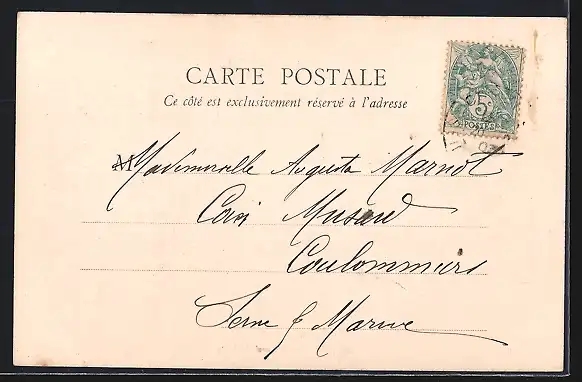 CARTE POSTALE
Ce côté est exclusivement réservé à l'adresse
5c
POSTES
Mademoiselle Augusta Marnot
Musard
Coulommiers
Seine & Marne